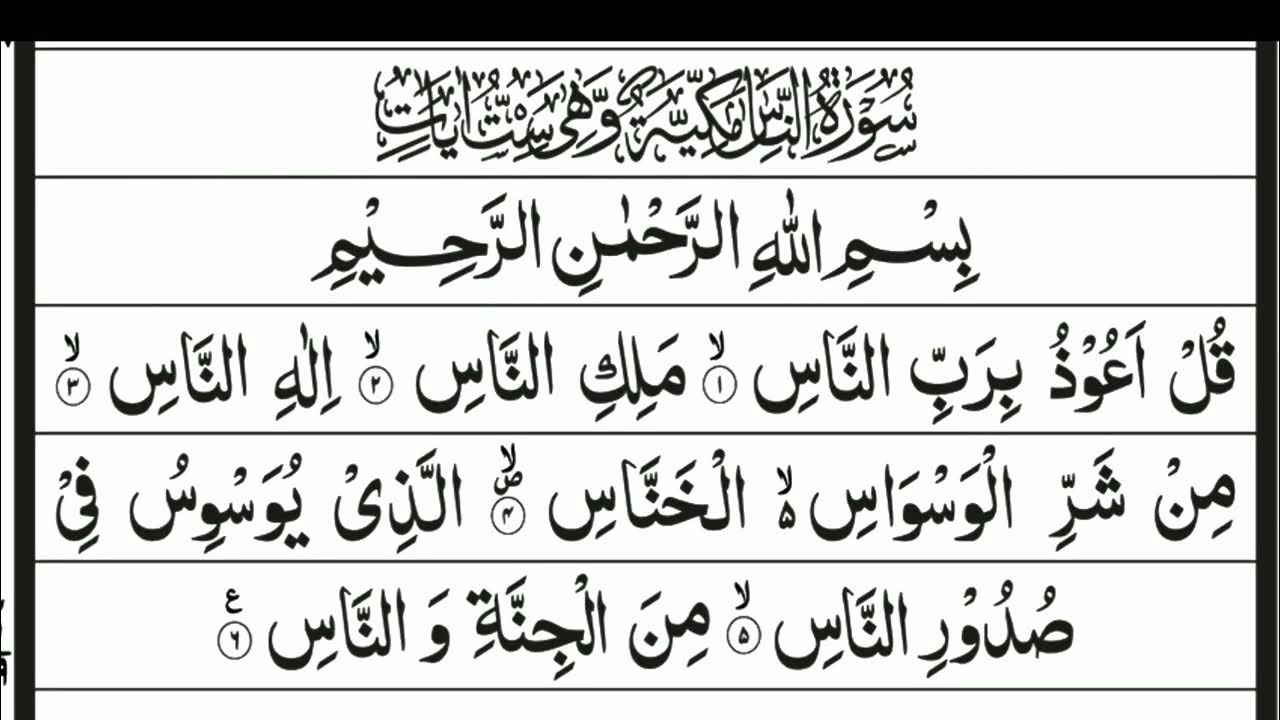 سُوْرَةُ النَّاسِ مَكِّيَّةٌ وَّهِىَ سِتُّ اٰيَاتٍ
بِسْمِ اللّٰهِ الرَّحْمٰنِ الرَّحِيْمِ
قُلْ اَعُوْذُ بِرَبِّ النَّاسِ ۙ﴿۱﴾ مَلِكِ النَّاسِ ۙ﴿۲﴾ اِلٰهِ النَّاسِ ۙ﴿۳﴾
مِنْ شَرِّ الْوَسْوَاسِ ۵ۙ الْخَنَّاسِ ۪ۙ﴿۴﴾ الَّذِىْ يُوَسْوِسُ فِىْ
صُدُوْرِ النَّاسِ ۙ﴿۵﴾ مِنَ الْجِنَّةِ وَ النَّاسِ ﴿۶﴾ ع